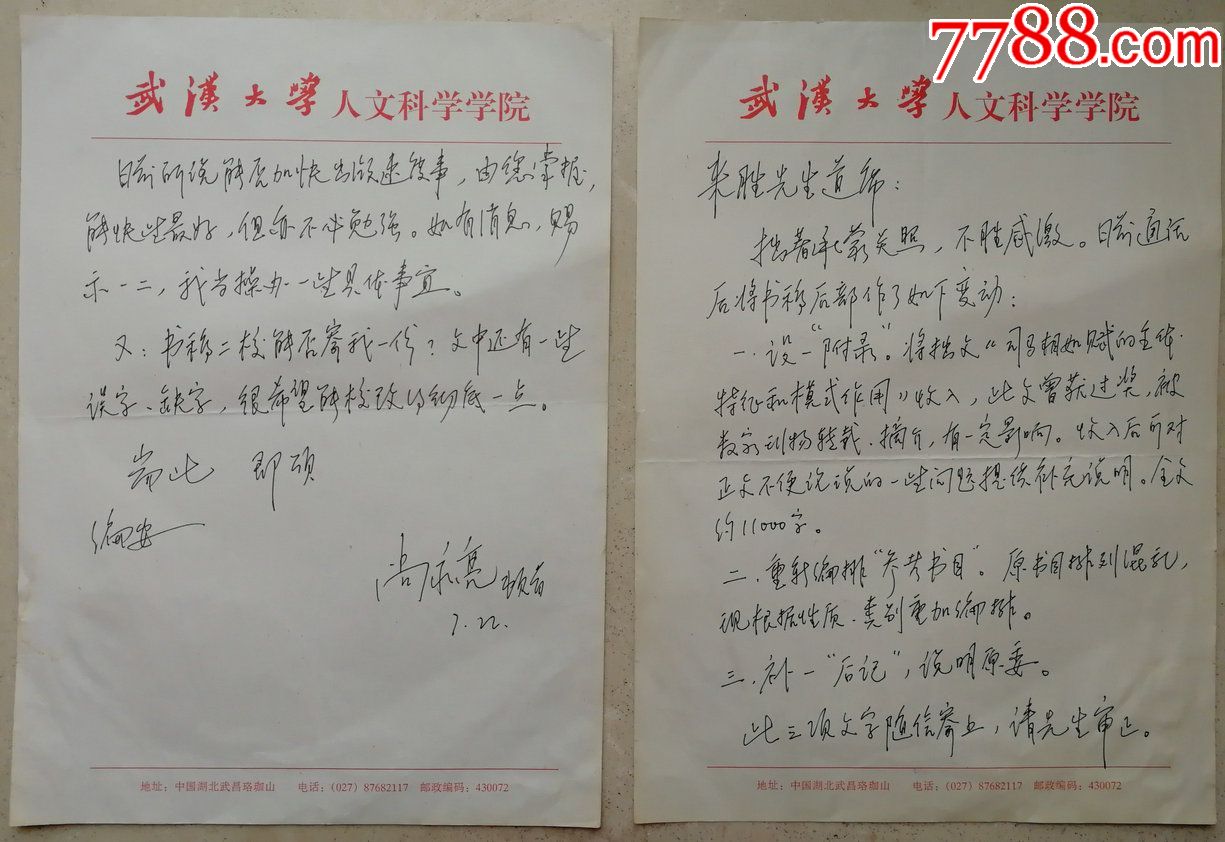 7788.com
武漢大學 人文科学学院
来胜先生道席：
拙著承蒙关照，不胜感激。日前通话
后将书稿后部作了如下变动：
一、设一"附录"。将拙文《司马相如赋的主体
特征和模式作用》收入，此文曾获过奖，被
数家刊物转载、摘介，有一定影响。收入后可对
正文不便说的一些问题提供补充说明。全文
约11000字。
二、重新编排"参考书目"。原书目排列混乱，
现根据性质、类别重加编排。
三、补一"后记"，说明原委。
此三项文字随信寄上，请先生审正。
地址：中国湖北武昌珞珈山 电话：(027) 87682117 邮政编码：430072
武漢大學 人文科学学院
日前所说能否加快出版速度事，由您掌握，
能快些最好，但亦不必勉强。如有消息，赐
示一二，我当操办一些具体事宜。
又：书稿二校能否寄我一份？文中还有一些
误字、缺字，很希望能校改得彻底一点。
耑此 即颂
编安
尚永亮 顿首
7.22.
地址：中国湖北武昌珞珈山 电话：(027) 87682117 邮政编码：430072